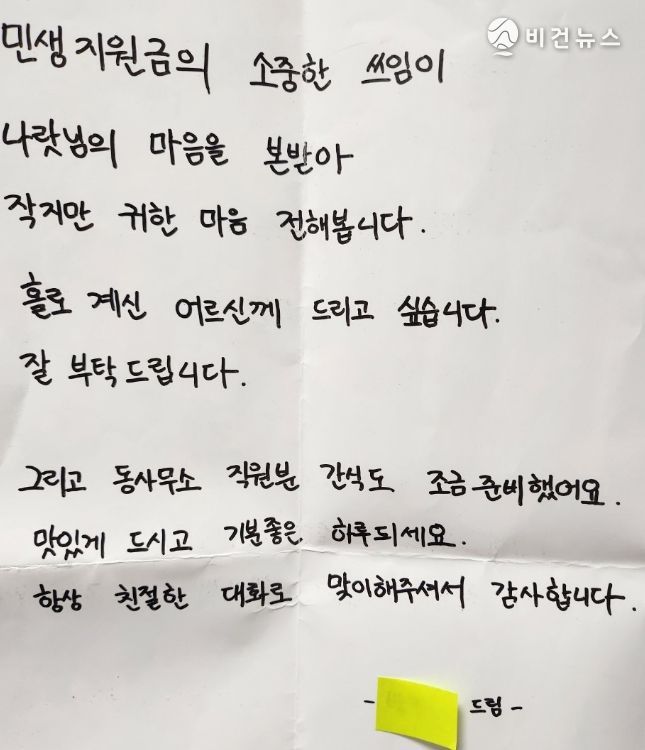 비건뉴스
민생지원금의 소중한 쓰임이
나랏님의 마음을 본받아
작지만 귀한 마음 전해봅니다.
홀로 계신 어르신께 드리고 싶습니다.
잘 부탁드립니다.
그리고 동사무소 직원분 간식도 조금 준비했어요.
맛있게 드시고 기분좋은 하루되세요.
항상 친절한 대화로 맞이해주셔서 감사합니다.
- 드림 -